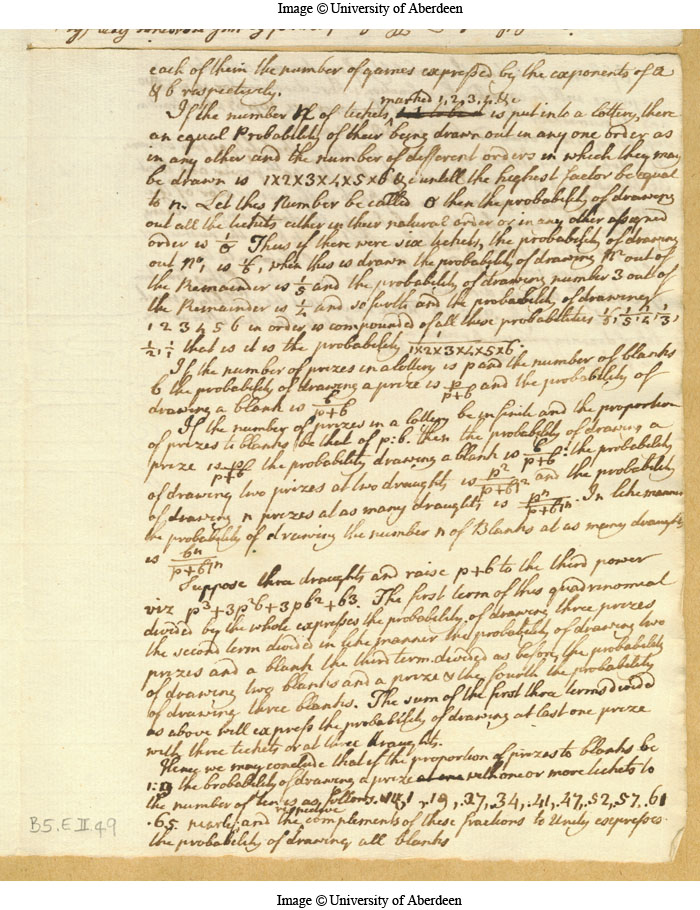 Image © University of Aberdeen
each of them the number of games expressed by the exponents of a
& b respectively.
marked 1, 2, 3, 4, &c
If the number n of tickets is put into a lottery, there
an equal Probability of their being drawn out in any one order as
in any other and the number of different orders in which they may
be drawn is 1x2x3x4x5x6 &c untill the highest factor be equal
to n. Let this Number be called O then the probability of drawing
out all the tickets either in their natural order or in any other assigned
order is 1/O Thus if there were six tickets, the probability of drawing
out No, 1 is 1/6, when this is drawn the probability of drawing No 2 out of
the Remainder is 1/5 and the probability of drawing number 3 out of
the Remainder is 1/4 and so forth and the probability of drawing
1 2 3 4 5 6 in order is compounded of all these probabilities 1/6, 1/5, 1/4, 1/3,
1/2, 1/1 that is it is the probability 1/1x2x3x4x5x6.
If the number of prizes in a lottery is p and the number of blanks
b the probability of drawing a prize is p/p+b and the probability of
drawing a blank is b/p+b
If the number of prizes in a lottery be infinite and the proportion
of prizes to blanks be that of p:b. then the probability of drawing a
prize is p/p+b the probability drawing a blank is b/p+b: the probability
of drawing two prizes at two draughts is p2/p+b)2 and the probability
of drawing n prizes at as many draughts is pn/p+b)n. In like manner
the probability of drawing the number n of Blanks at as many draughts
is bn/p+b)n
Suppose three draughts and raise p+b to the third power
viz p3+3p2b+3pb2+b3. The first term of this quadrinomial
divided by the whole expresses the probability of drawing three prizes
the second term divided in like manner the probability of drawing two
prizes and a blank the third term divided as before, the probability
of drawing two blanks and a prize & the fourth the probability
of drawing three blanks. The sum of the first three terms divided
as above will express the probability of drawing at last one prize
with three tickets or at three draughts.
Hence we may conclude that if the proportion of prizes to blanks be
1: the probability of drawing a prize with one or more tickets to
the number of ten is as follows. viz .1, .19, .27, .34, .41, .47, .52, .57, .61
respective
.65 nearly and the complements of these fractions to Unity expresses
the probability of drawing all blanks
B5.E II.49
Image © University of Aberdeen